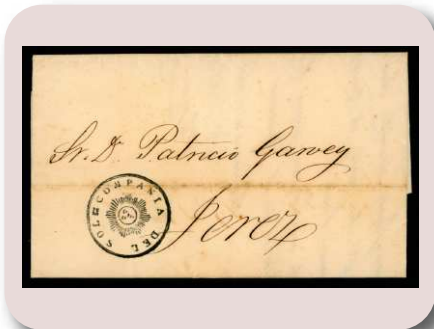 Sr. D. Patricio Garvey
Jerez
COMPAÑIA DEL SOL